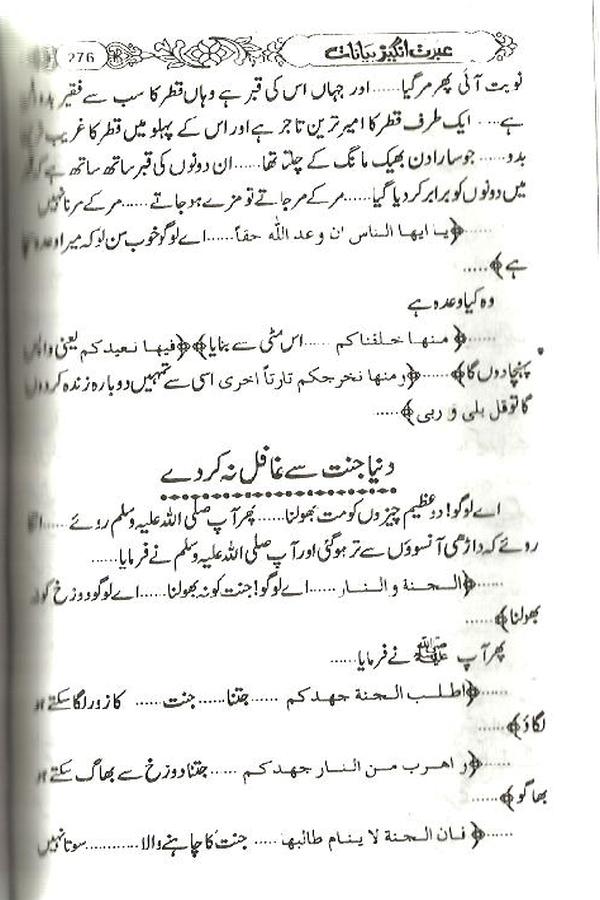 276 عبرت انگیز بیانات
نوبت آئی پھر مرگیا......اور جہاں اس کی قبر ہے وہاں قطر کا سب سے فقیر بدو
ہے.... ایک طرف قطر کا امیر ترین تاجر ہے اور اس کے پہلو میں قطر کا غریب
بدو...... جو سارا دن بھیک مانگ کے چلتا تھا......ان دونوں کی قبر ساتھ ساتھ ہے
میں دونوں کو برابر کردیا گیا......مر کے مرجاتے تو مزے ہوجاتے......مر کے مرنا نہیں
......﴿یا ایها الناس ان وعد الله حقاً......اے لوگو خوب سن لو کہ میرا وعدہ
ہے﴾......
وہ کیا وعدہ ہے
......﴿منها خلقناكم ......اس مٹی سے بنایا﴾﴿فيها نعيدكم یعنی واپس
پہنچا دوں گا﴾......﴿ومنها نخرجكم تارتاً اخرى اسی سے تمہیں دوبارہ زندہ کردوں
گا توقل بلى و ربى﴾......
دنیا جنت سے غافل نہ کردے
اے لوگو! دو عظیم چیزوں کو مت بھولنا......پھر آپ صلی اللہ علیہ وسلم روئے ......
روئے کہ داڑھی آنسوؤں سے تر ہوگئی اور آپ صلی اللہ علیہ وسلم نے فرمایا......
......﴿الجنة و النار ......اے لوگو! جنت کو نہ بھولنا......اے لوگو دوزخ کو
بھولنا﴾......
پھر آپ ﷺ نے فرمایا......
......﴿اطلب الجنة جهدكم ......جتنا......جنت ...... کا زور لگا سکتے ہو
لگاؤ﴾......
......﴿و اهرب من النار جهدكم ......جتنا دوزخ سے بھاگ سکتے ہو
بھاگو﴾......
......﴿فان الجنة لا ينام طالبها ......جنت کا چاہنے والا............سوتا نہیں